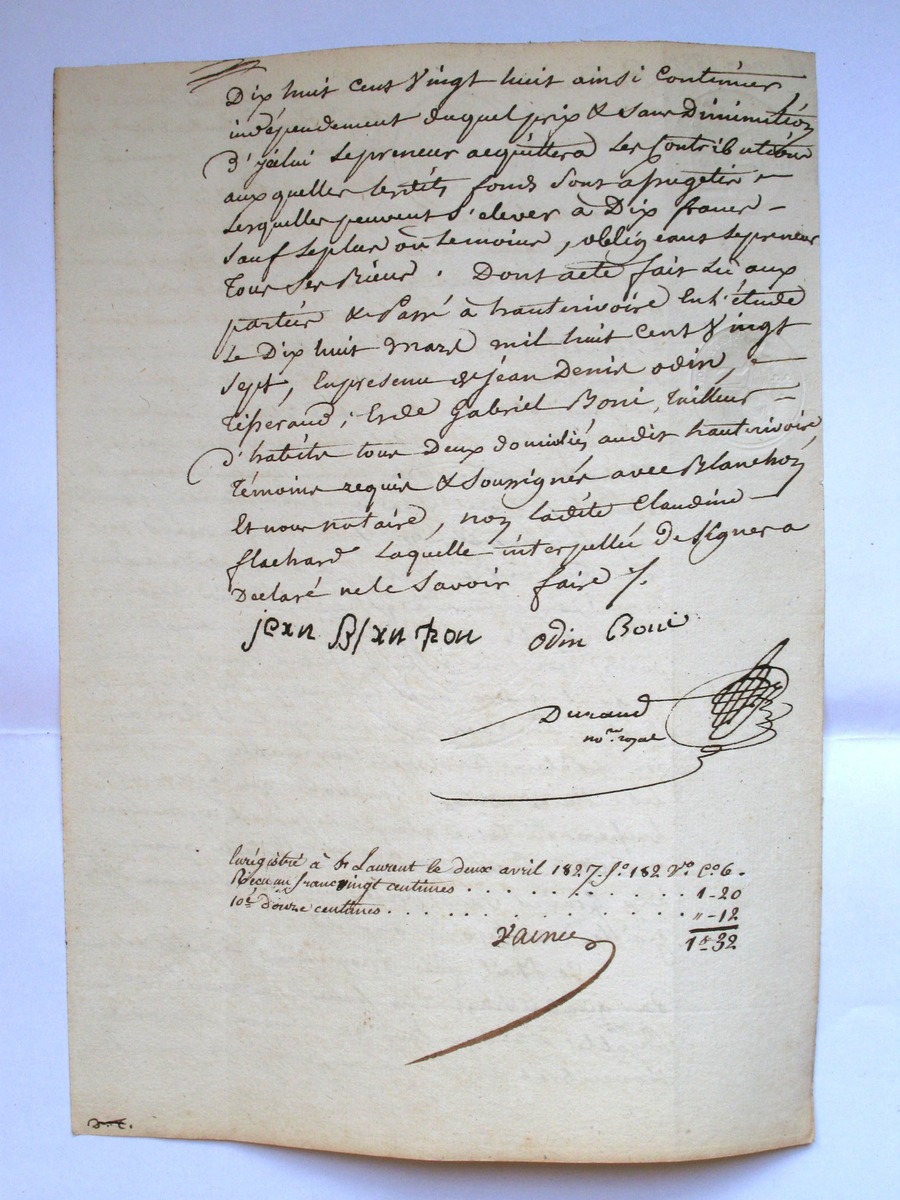 Dix huit cent Vingt huit ainsi Continuer
indépendement duquel prix & sans Diminution
d'icelui le preneur acquittera les Contributions
aux quelles lesdits fonds sont assugetis
lesquelles peuvent s'elever à Dix francs -
sauf le plus ou le moins, obligeant le preneur
tous ses Biens. Dont acte fait Lu aux
parties & Passé à hauterivoire En l'étude
Le Dix huit mars mil huit Cent Vingt
sept, En presence de jean Denis odin,
Tisserand, Et de Gabriel Boni, tailleur -
d'habits tous deux domiciliés audit hauterivoire
témoins requis & soussignés avec Blanchon
Et nous notaire, non ladite Claudine
flachard Laquelle interpellée de signer a
Declaré ne le savoir faire /.
jean Blanchon odin Boni
Durand
no.re royal
Enrégistré à St Laurent le deux avril 1827 fo. 182 Vo. Co 6.
Reçu un franc vingt centimes . . . . . . . 1-20
10e. douze centimes . . . . . . . . . . . " -12
1 32